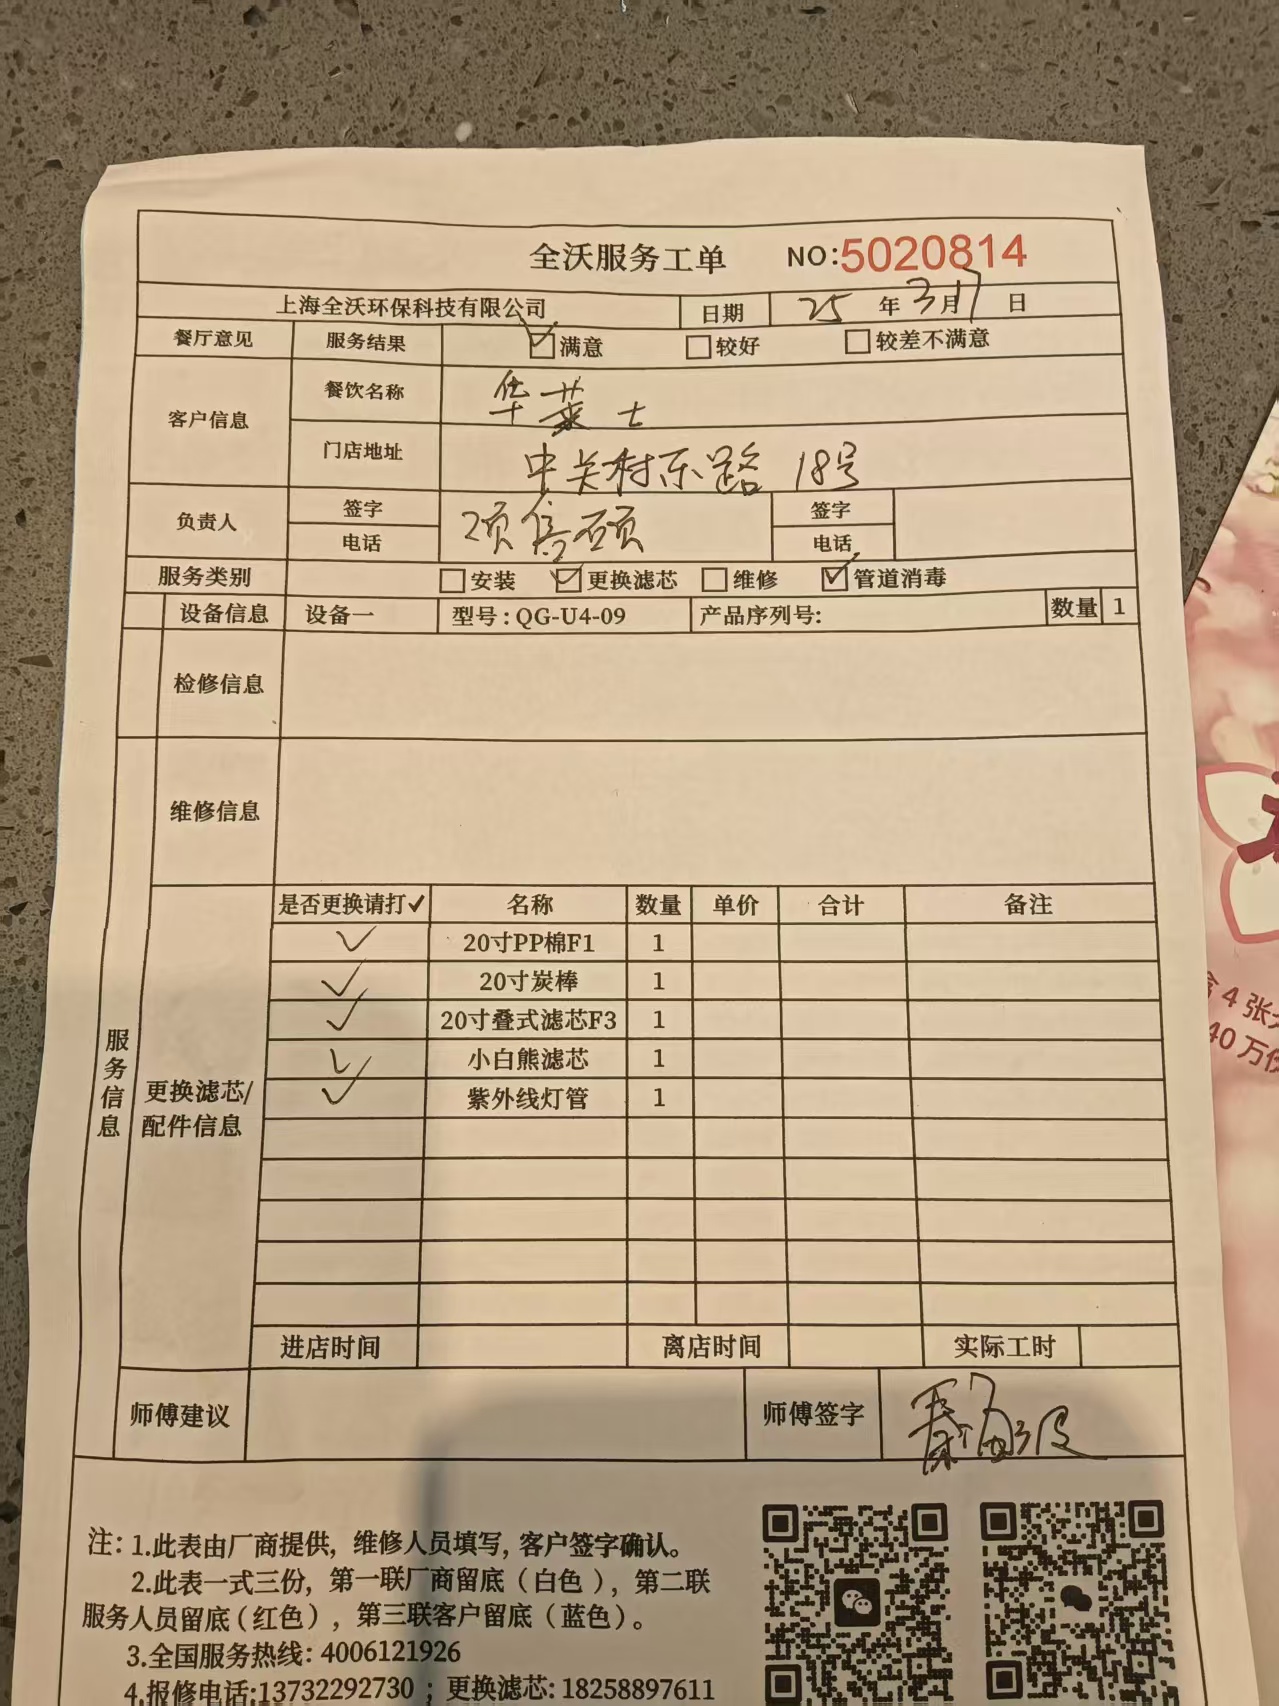 全沃服务工单 NO:5020814
上海全沃环保科技有限公司 日期 25 年 3 月 17 日
餐厅意见 服务结果 ☑满意 □较好 □较差不满意
客户信息 餐饮名称 华莱士
门店地址 中关村东路 18号
负责人 签字 签字
电话 电话
服务类别 □安装 ☑更换滤芯 □维修 ☑管道消毒
设备信息 设备一 型号:QG-U4-09 产品序列号: 数量 1
检修信息
维修信息
服务信息
更换滤芯/
配件信息
是否更换请打✓ 名称 数量 单价 合计 备注
✓ 20寸PP棉F1 1
✓ 20寸炭棒 1
✓ 20寸叠式滤芯F3 1
✓ 小白熊滤芯 1
✓ 紫外线灯管 1
进店时间 离店时间 实际工时
师傅建议 师傅签字
注: 1.此表由厂商提供, 维修人员填写, 客户签字确认。
2.此表一式三份, 第一联厂商留底(白色), 第二联
服务人员留底(红色), 第三联客户留底(蓝色)。
3.全国服务热线: 4006121926
4.报修电话:13732292730 ; 更换滤芯: 18258897611
含 4 张
40 万